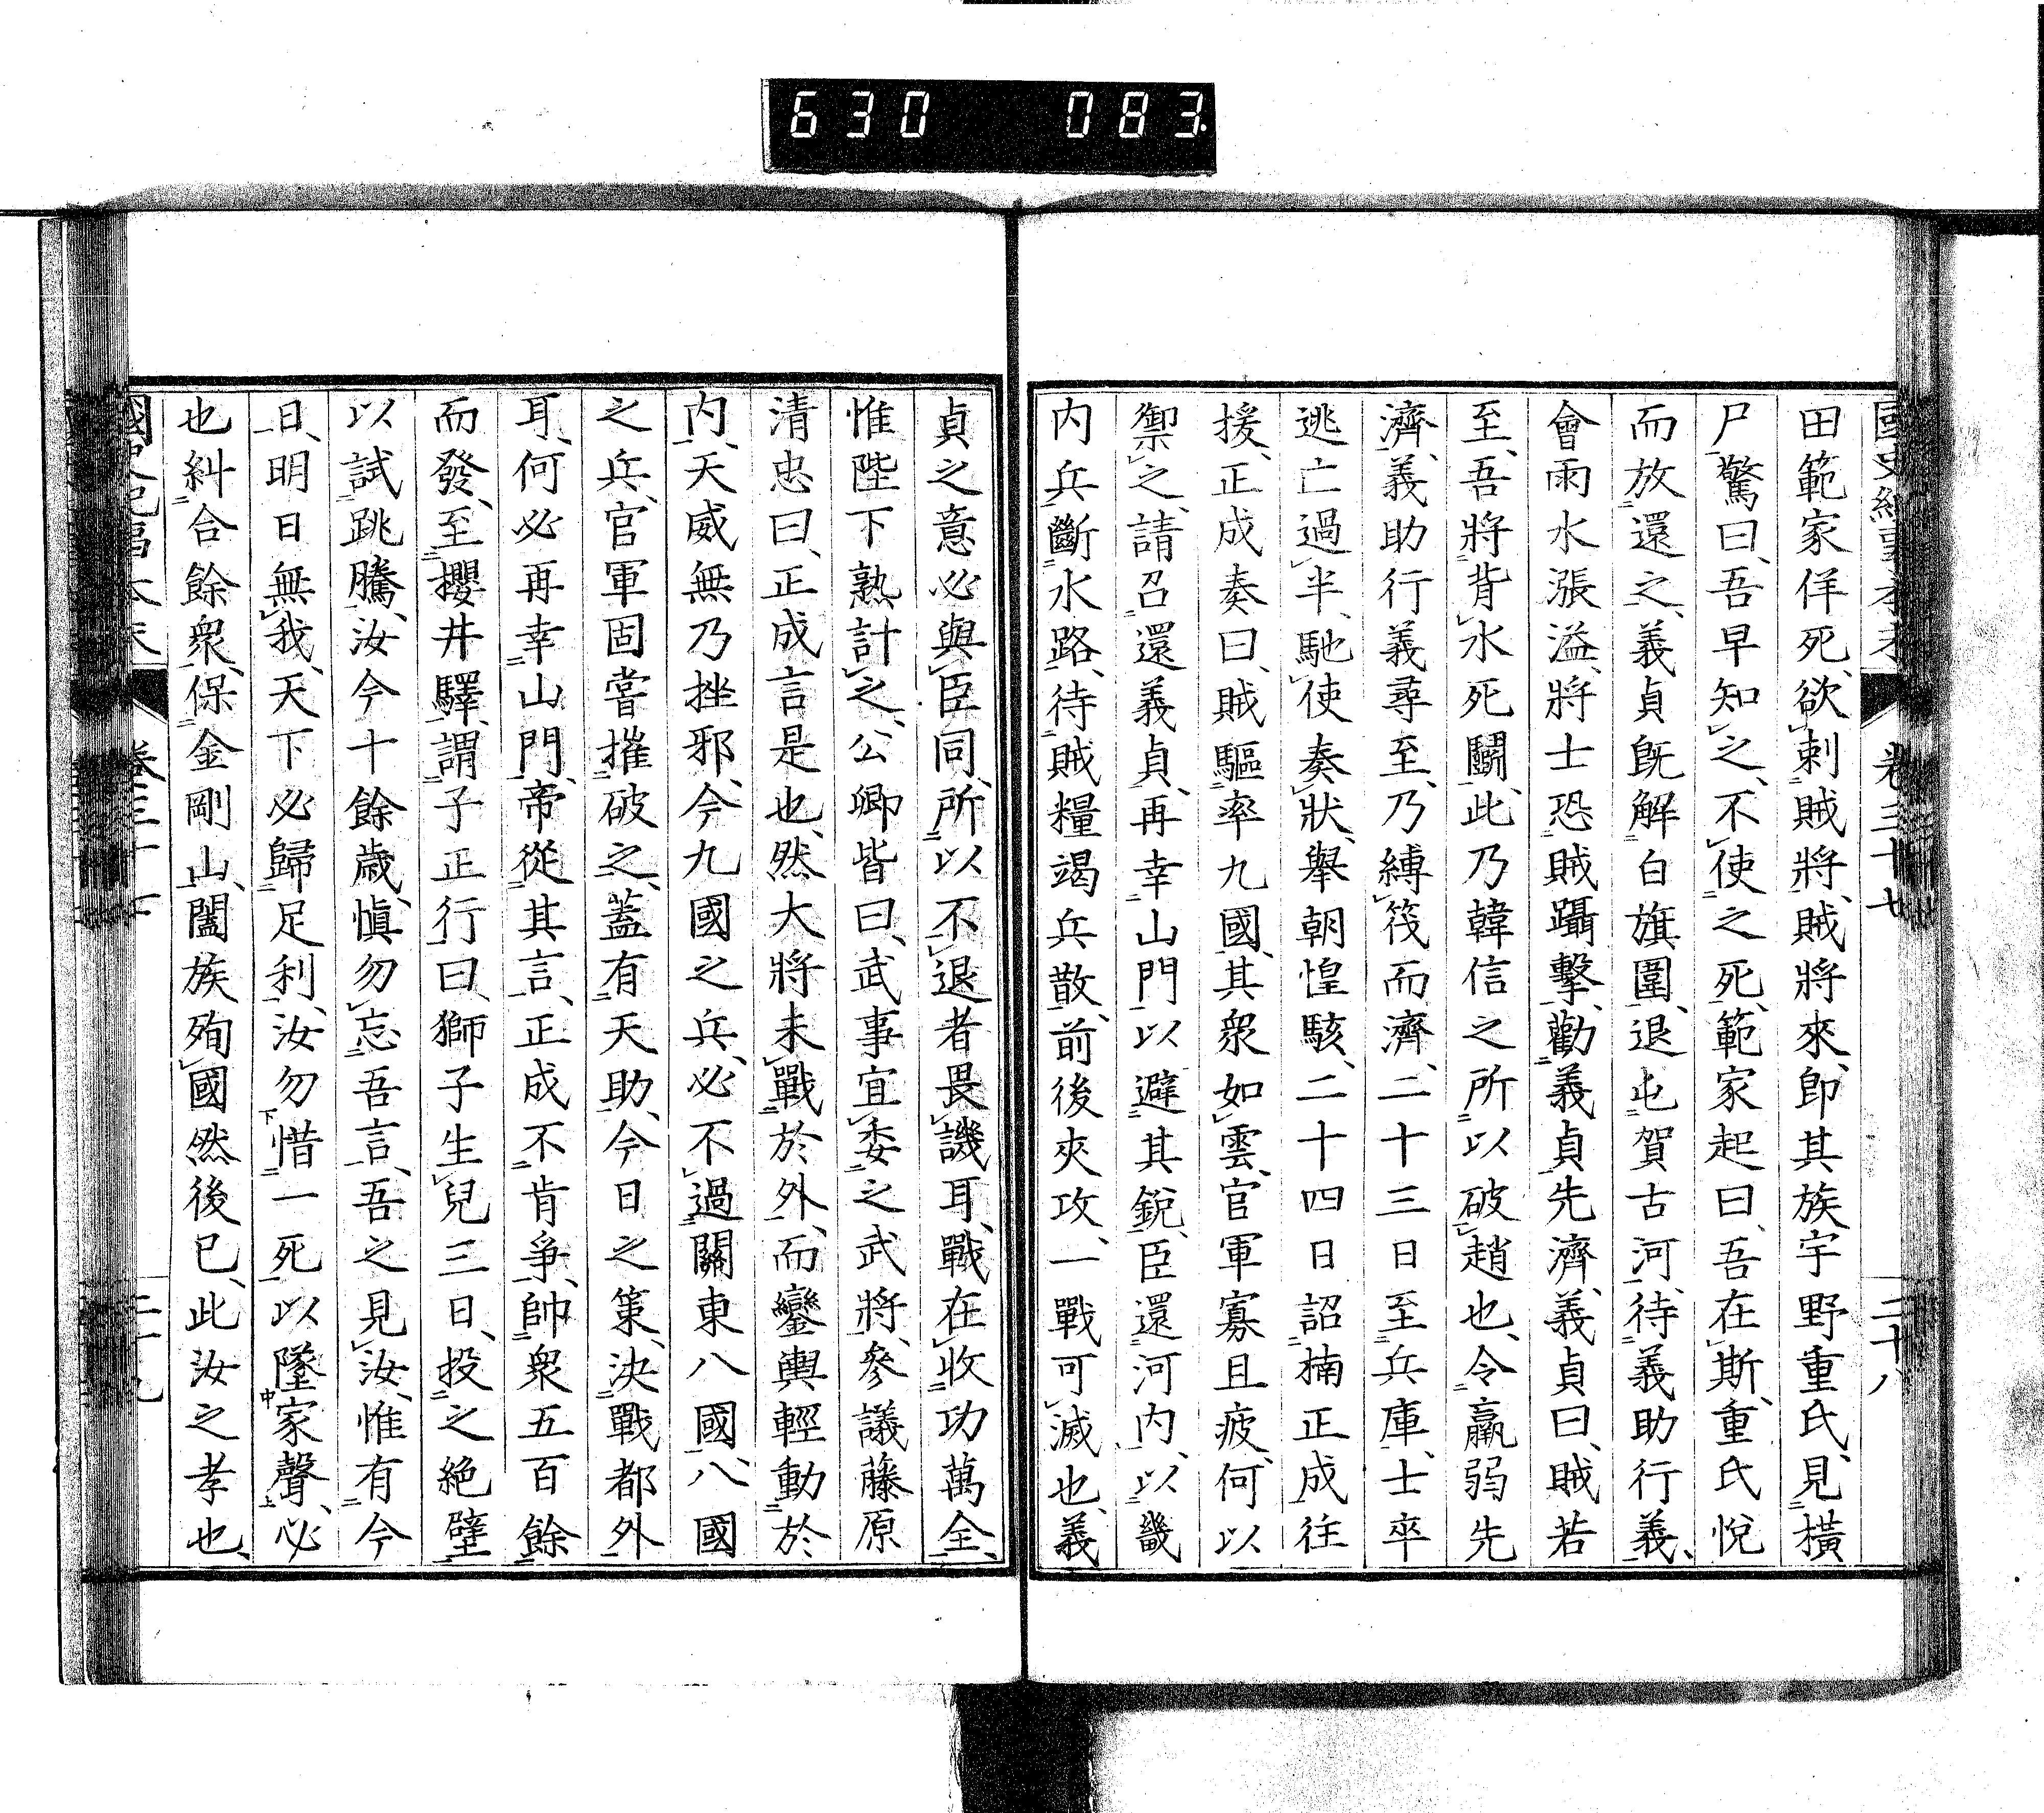 630 083.
田範家佯死、欲刺賊將、賊將來、即其族宇野重氏、見橫
尸驚曰、吾早知之、不使之死、範家起曰、吾在斯、重氏悅
而放還之、義貞既解白旗圍、退屯賀古河、待義助行義、
會雨水漲溢、將士恐賊躡擊、勸義貞先濟、義貞曰、賊若
至、吾將背水死鬭、此乃韓信之所以破趙也、令羸弱先
濟、義助行義尋至、乃縛筏而濟、二十三日至兵庫、士卒
逃亡過半、馳使奏狀、舉朝惶駭、二十四日詔楠正成往
援、正成奏曰、賊驅率九國、其衆如雲、官軍寡且疲、何以
禦之、請召還義貞、再幸山門以避其銳、臣還河內、以畿
内兵斷水路、待賊糧竭兵散、前後夾攻、一戰可滅也、義
貞之意必與臣同、所以不退者畏譏耳、戰在收功萬全、
惟陛下熟計之、公卿皆曰、武事宜委之武將、參議藤原
清忠曰、正成言是也、然大將未戰於外、而鑾輿輕動於
内、天威無乃挫邪、今九國之兵、必不過關東八國、八國
之兵、官軍固嘗摧破之、蓋有天助、今日之策、決戰都外
耳、何必再幸山門、帝從其言、正成不肯爭、帥衆五百餘
而發、至櫻井驛、謂子正行曰、獅子生兒三日、投之絶壁
以試跳騰、汝今十餘歲、愼勿忘吾言、吾之見汝、惟有今
日、明日無我、天下必歸足利、汝勿惜一死以墜家聲、必
也糾合餘衆、保金剛山、闔族殉國然後已、此汝之孝也、